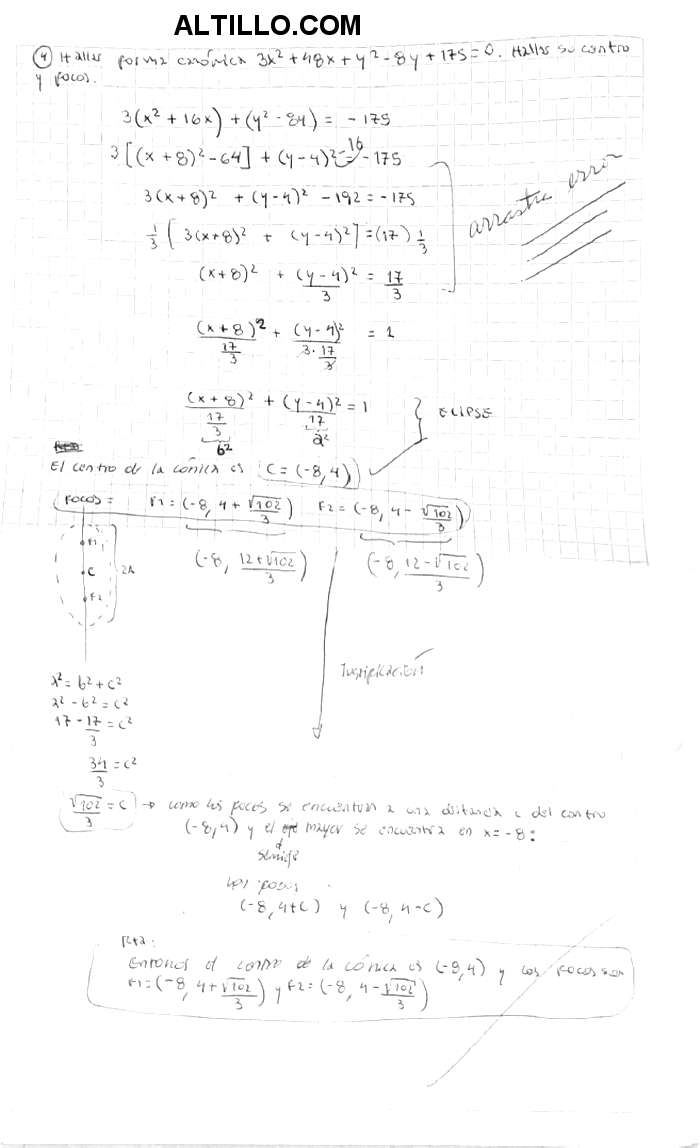 ALTILLO.COM
④ Hallar forma canónica 3x² + 48x + y² - 8y + 175 = 0. Hallar su centro
y focos.
3(x² + 16x) + (y² - 8y) = - 175
3[(x + 8)² - 64] + (y - 4)² - 16 = - 175
3(x + 8)² + (y - 4)² - 192 = - 175
1/3 [3(x+8)² + (y - 4)²] = (17) 1/3
(x + 8)² + (y - 4)²/3 = 17/3
arrastra error
(x + 8)²/(17/3) + (y - 4)²/(3 · 17/3) = 1
(x + 8)²/(17/3) + (y - 4)²/17 = 1 } ELIPSE
b² a²
El centro de la cónica es C = (-8, 4)
Focos = F1 = (-8, 4 + √102/3) F2 = (-8, 4 - √102/3)
(-8, (12 + √102)/3) (-8, (12 - √102)/3)
F1
C 2A
F2
Justificación
a² = b² + c²
a² - b² = c²
17 - 17/3 = c²
34/3 = c²
√102/3 = c → como los focos se encuentran a una distancia c del centro
(-8, 4) y el eje mayor se encuentra en x = -8:
semieje
Los focos
(-8, 4+c) y (-8, 4-c)
Rta:
Entonces el centro de la cónica es (-8, 4) y los focos son
F1 = (-8, 4 + √102/3) y F2 = (-8, 4 - √102/3)